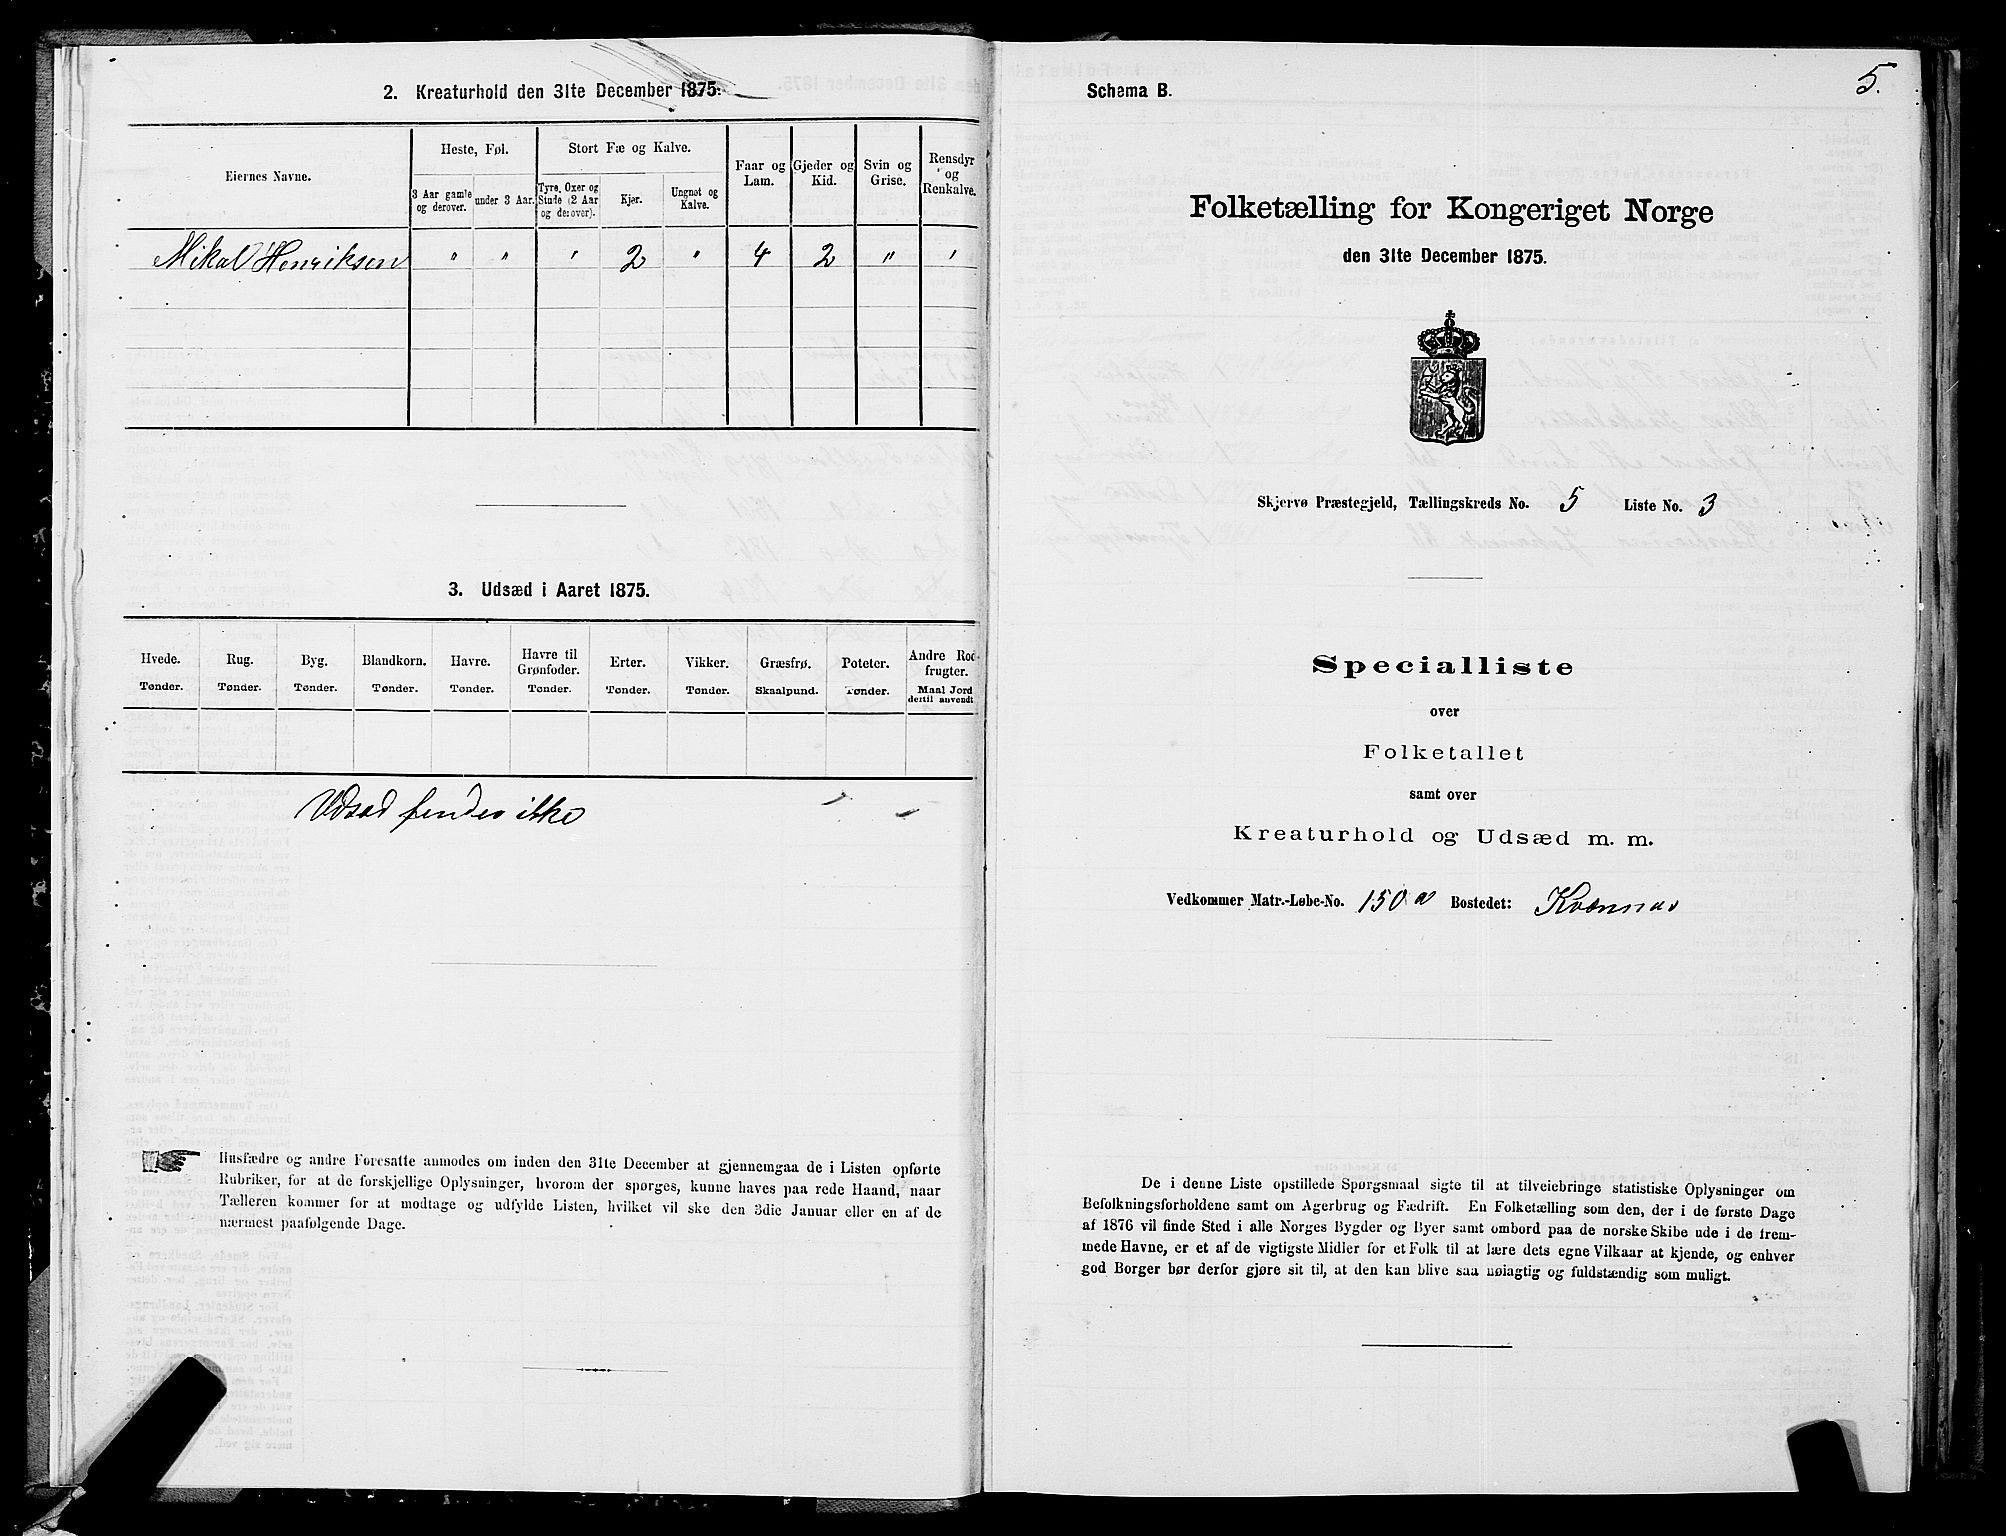 2. Kreaturhold den 31te December 1875.
Eiernes Navne.
Heste, Føl.
3 Aar gamle og derover.
under 3 Aar.
Stort Fæ og Kalve.
Tyre, Oxer og Stude (2 Aar og derover).
Kjør.
Ungnøt og Kalve.
Faar og Lam.
Gjeder og Kid.
Svin og Grise.
Rensdyr og Renkalve.
Mikal Henriksen " " " 2 " 4 2 " "
3. Udsæd i Aaret 1875.
Hvede. Rug. Byg. Blandkorn. Havre. Havre til Grønfoder. Erter. Vikker. Græsfrø. Poteter. Andre Rodfrugter.
Tønder. Tønder. Tønder. Tønder. Tønder. Tønder. Tønder. Tønder. Skaalpund. Tønder. Maal Jord dertil anvendt
Udsæd findes ikke
Husfædre og andre Foresatte anmodes om inden den 31te December at gjennemgaa de i Listen opførte
Rubriker, for at de forskjellige Oplysninger, hvorom der spørges, kunne haves paa rede Haand, naar
Tælleren kommer for at modtage og udfylde Listen, hvilket vil ske den 3die Januar eller en af de
nærmest paafølgende Dage.
5.
Schema B.
Folketælling for Kongeriget Norge
den 31te December 1875.
Skjervø Præstegjeld, Tællingskreds No. 5 Liste No. 3
Specialliste
over
Folketallet
samt over
Kreaturhold og Udsæd m. m.
Vedkommer Matr.-Løbe-No. 150 a Bostedet: Kvænnæs
De i denne Liste opstillede Spørgsmaal sigte til at tilveiebringe statistiske Oplysninger om
Befolkningsforholdene samt om Agerbrug og Fædrift. En Folketælling som den, der i de første Dage
af 1876 vil finde Sted i alle Norges Bygder og Byer samt ombord paa de norske Skibe ude i de frem-
mede Havne, er et af de vigtigste Midler for et Folk til at lære dets egne Vilkaar at kjende, og enhver
god Borger bør derfor gjøre sit til, at den kan blive saa nøiagtig og fuldstændig som muligt.